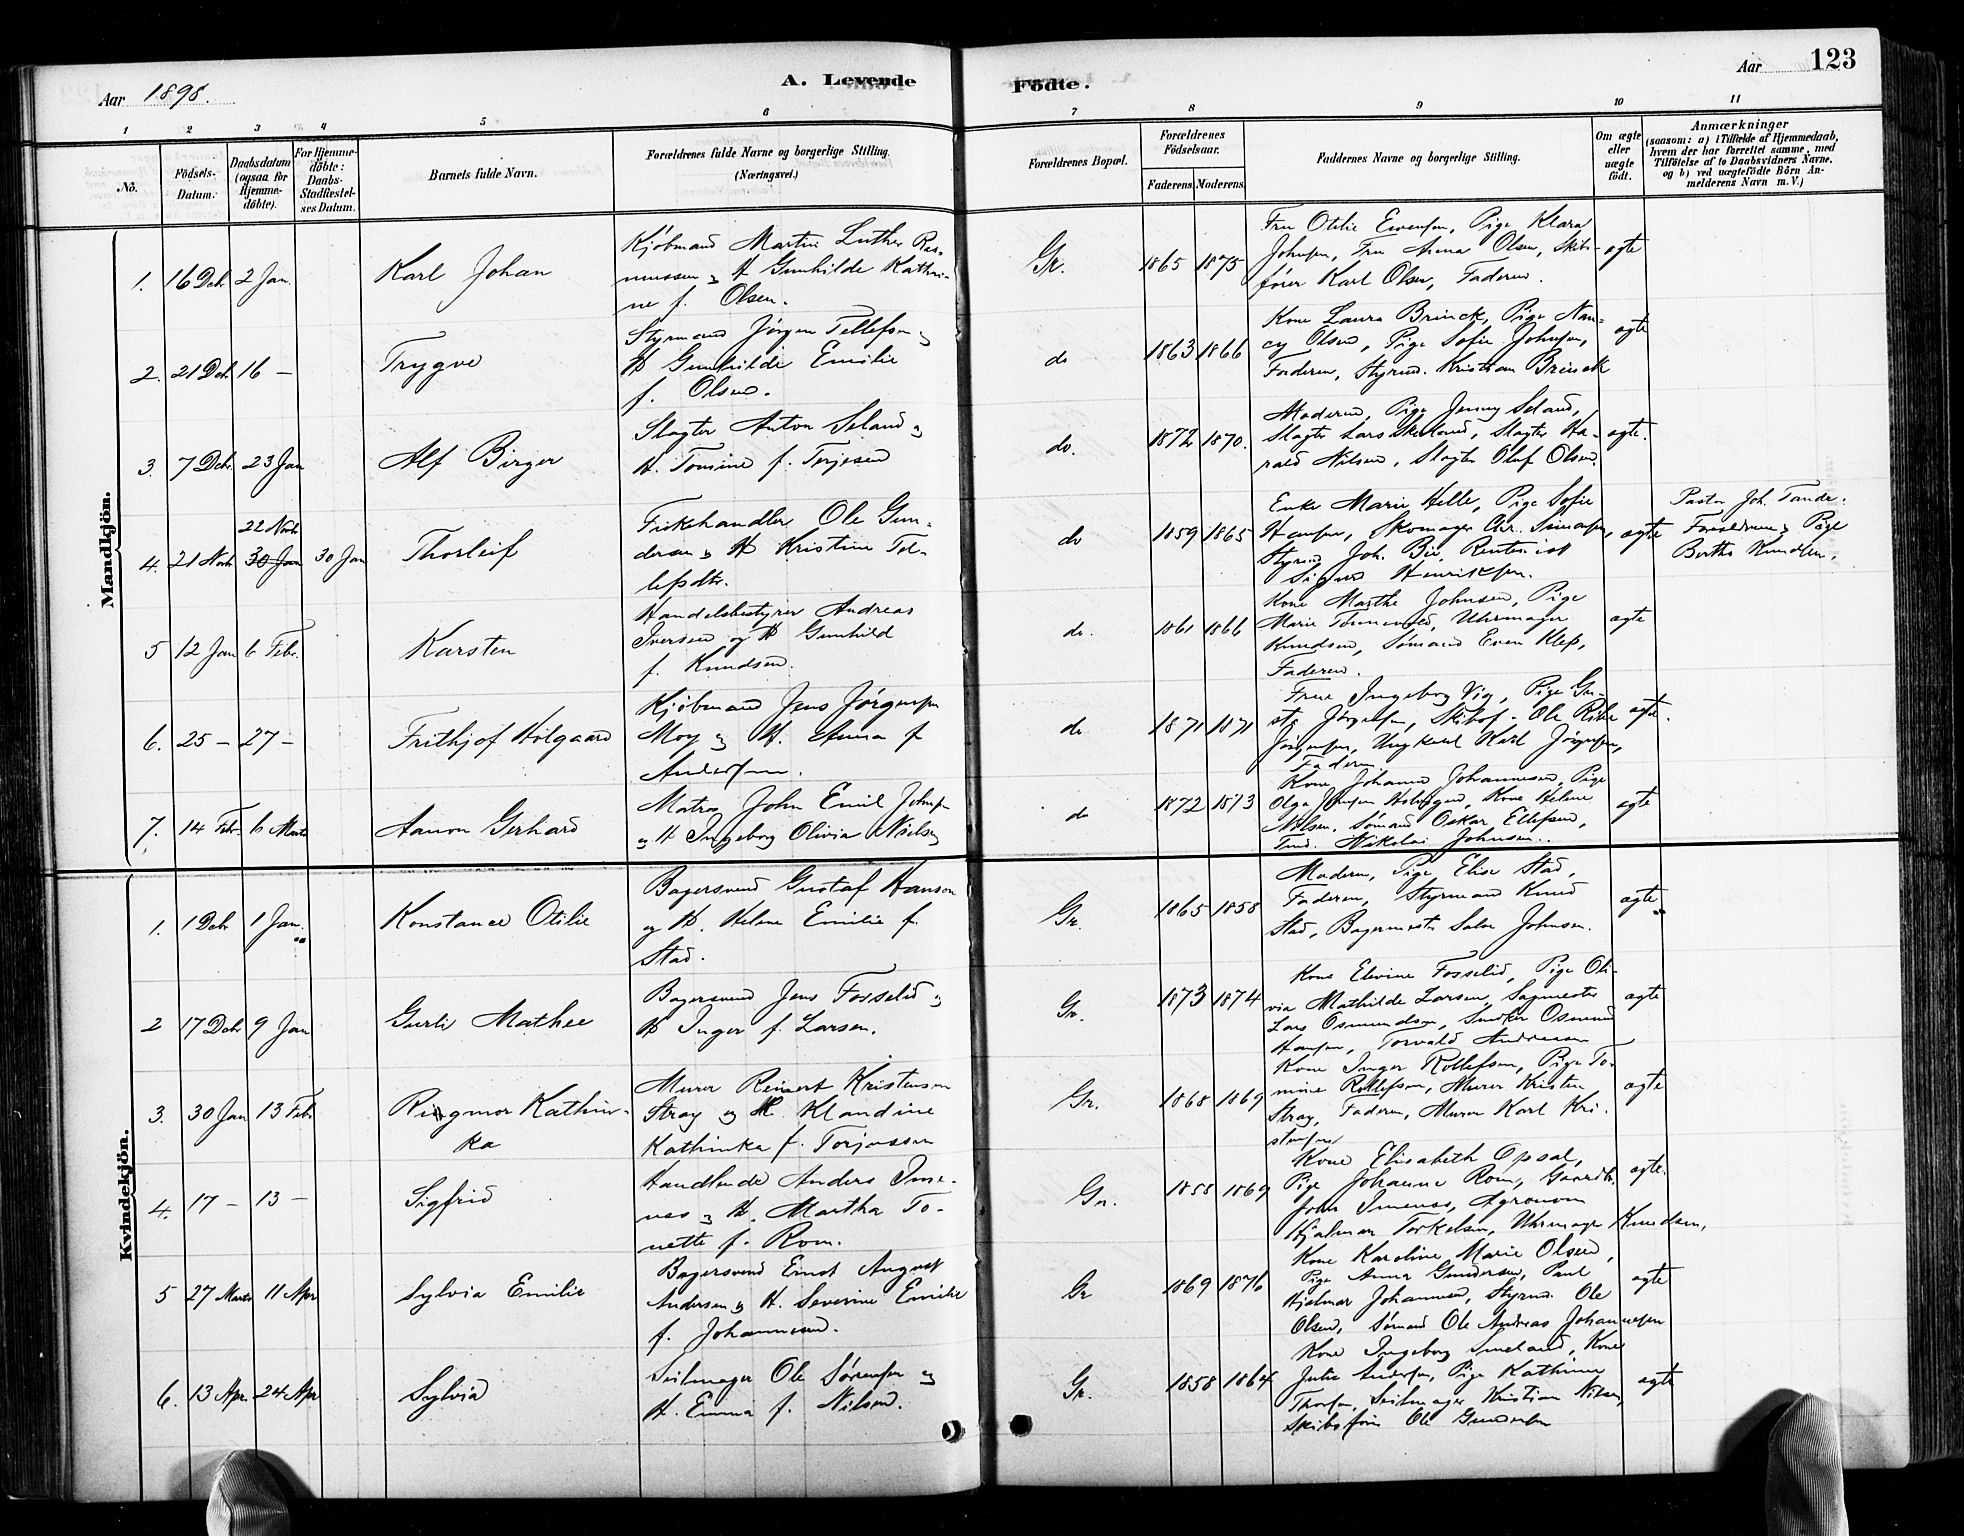 Aar 1898.
A. Levende
Födte.
Aar 123
1 2 3 4 5 6 7 8 9 10 11
No.
Födsels-Datum.
Daabsdatum (ogsaa for Hjemme-döbte).
For Hjemme-döbte: Daabs-Stadfæstel-ses Datum.
Barnets fulde Navn.
Forældrenes fulde Navne og borgerlige Stilling. (Næringsvei.)
Forældrenes Bopæl.
Forældrenes Födselsaar.
Faderens. Moderens.
Faddernes Navne og borgerlige Stilling.
Om ægte eller uægte födt.
Anmærkninger
(saasom: a) i Tilfælde af Hjemmedaab,
hvem der har forrettet samme, med
Tilföielse af to Daabsvidners Navne.
og b) ved uægtefödte Börn An-
melderens Navn m.V.)
Mandkjön.
1. 16 Dcb. 2 Jan. Karl Johan
Kjöbmand Martin Luther Ras-
mussen og H. Gunhilde Kathri-
ne f. Olsen.
Gr. 1865 1875
Fru Otilie Evensen, Pige Klara
Johnsen, Fru Anna Olsen, Skib-
förer Karl Olsen, Faderen.
ægte
2. 21 Dcb. 16 – Trygve
Styrmand Jörgen Tellefsen og
H. Gunhilde Emilie
f. Olsen.
do 1863 1866
Kone Laura Brinck, Pige Nan-
cy Olsen, Pige Sofie Johnsen,
Faderen, Styrmd. Kristian Brinck
ægte
3. 7 Dcb. 23 Jan Alf Birger
Slagter Anton Seland og
H. Tomine f. Terjesen
do. 1872 1870.
Moderen, Pige Jenny Seland,
Slagter Lars Skeiland, Slagter Ha-
rald Nilsen, Slagter Oluf Olsen.
ægte.
4. 21 Novb 22 Novb 30 Jan 30 Jan Thorleif
Fiskehandler Ole Gun-
dersen og H. Kristine Tel-
lefsdtr.
do 1859 1865
Enke Marie Helle, Pige Sofie
Hansen, Skomager Chr. Simonsen,
Styrmd Joh. Bie, Rentenist
Sigurd Henriksen.
ægte
Pastor Joh. Tande.
Forældrene og Pige
Bertha Knudsen.
5 12 Jan 6 Febr. Karsten
Handelsbestyrer Andreas
Iversen og H. Gunhild
f. Knudsen.
do. 1861 1866
Kone Marthe Johnsen, Pige
Marie Uhrmager
Knudsen, Sömand Even Klep,
Faderen.
ægte
6. 25 – 27 – Frithjof Holgaard
Kjöbmand Jens Jörgensen
Moy og H. Anna f.
Andersen.
do 1871 1871
Frue Ingeborg Vig, Pige Gu-
sta Jörgensen, Skibsf. Ole
Jörgensen, Ungkarl Karl Jörgensen,
Faderen.
ægte.
7. 14 Febr. 6 Marts Aanon Gerhard
Matros John Emil Johnsen
og H. Ingeborg Olivia Nielsen
do 1872 1873
Kone Johanne Johannesen, Pige
Olga Jensen Kone Helene
Nilsen, Sömand Oskar Ellefsen,
Nikolai Johnsen.
ægte
Kvindekjön.
1. 1 Dcb 1 Jan. Konstance Otilie
Bagersvend Gustaf Hanson
og H. Helene Emilie f.
Stad.
Gr. 1865 1858
Moderen, Pige Elise Stad,
Faderen, Styrmand Knud
Stad, Bagermester Salve Johnsen.
ægte
2 17 Dcb 9 Jan Gurli Mathee
Bagersvend Jens Fosselid og
H. Inger f. Larsen.
Gr. 1873 1874
Kone Elevine Fosselid, Pige Oli-
via Mathilde Larsen, Sagmester
Lars Osmundsen, Snedker Osmund
Hansen, Torvald Andreasen
ægte
3. 30 Jan 13 Feb. Ringmor Kathin-
ka
Murer Reinert Kristensen
Stray og H. Klandine
Kathinka f. Torjussen
Gr. 1868 1869
Kone Inger Rollefsen, Pige To-
mine Rollefsen, Murer Kristen
Stray, Faderen, Murer Karl Kri-
stensen
ægte
4. 17 – 13 – Sigfrid
Handlende Anders Ime-
nes og H. Martha To-
nette f. Rom.
Gr. 1858 1869
Kone Elisabeth Opsal,
Pige Johanne Rom, Gaardbr.
John Imenes, Agronom
Hjalmar Torkelsen, Uhrmager Knudsen,
ægte.
5 27 Marts 11 Apr Sylvia Emilie
Bagersvend Ernst August
Andersen og H. Severine Emilie
f. Johannesen.
Gr 1869 1876
Kone Karoline Marie Olsen,
Pige Anna Gundersen, Paul
Hjalmar Johannesen, Styrmd. Ole
Olsen, Sömand Ole Andreas Johannesen
ægte
6. 13 Apr. 24 Apr Sylvia
Seilmager Ole Sörensen og
H. Emma f. Nilsen.
Gr. 1858 1864
Kone Ingeborg Smeland, Kone
Julie Andersen, Pige Kathinca
Thorsen, Seilmager Kristian Nilsen,
Skibsförer Ole Gundersen
ægte